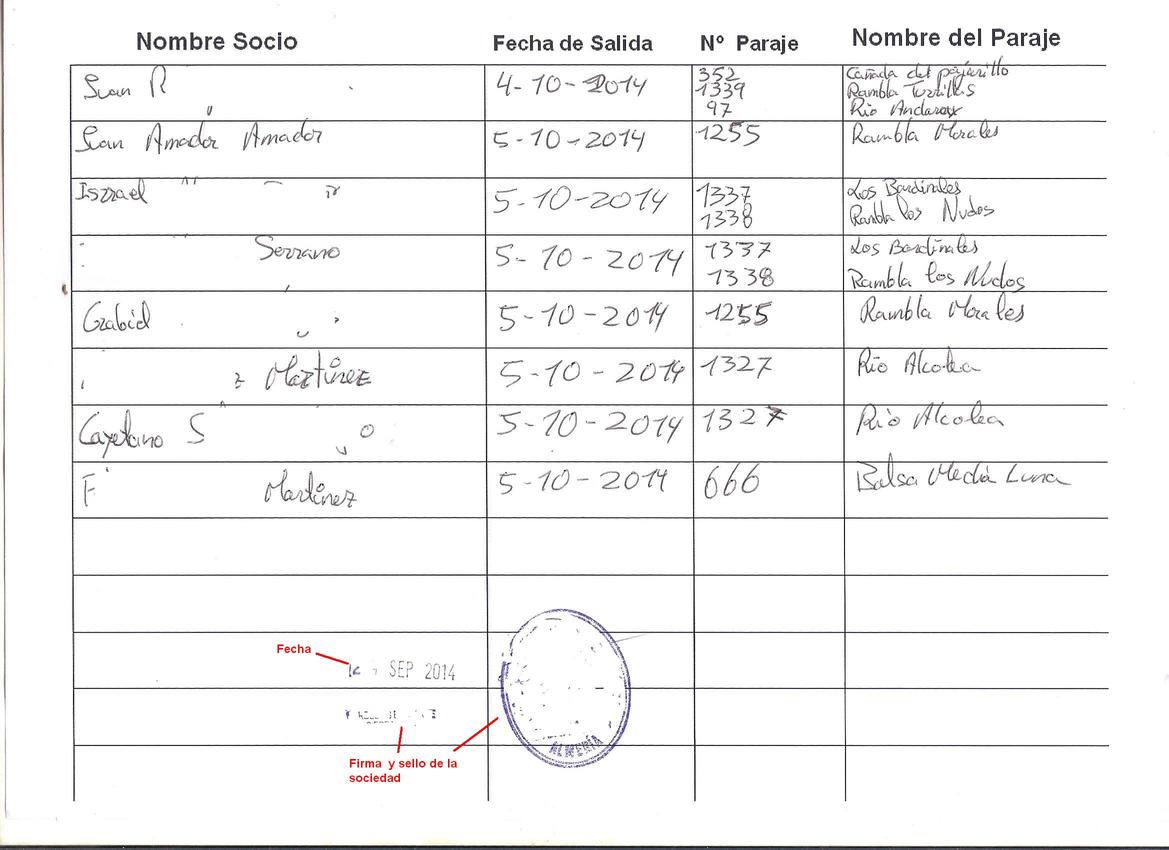 Nombre Socio Fecha de Salida Nº Paraje Nombre del Paraje
Juan R 4-10-2014 352 Cañada del pajarillo
1339 Rambla Turrillas
97 Rio Andarax
Juan Amador Amador 5-10-2014 1255 Rambla Morales
Iszrael 5-10-2014 1337 Los Bardinales
1338 Rambla los Nudos
Serrano 5-10-2014 1337 Los Bardinales
1338 Rambla los Nudos
Grabid 5-10-2014 1255 Rambla Morales
z Martinez 5-10-2014 1327 Rio Alcolea
Cayetano S o 5-10-2014 1327 Rio Alcolea
F Martinez 5-10-2014 666 Balsa Media Luna
Fecha
SEP 2014
ALMERÍA
Firma y sello de la
sociedad